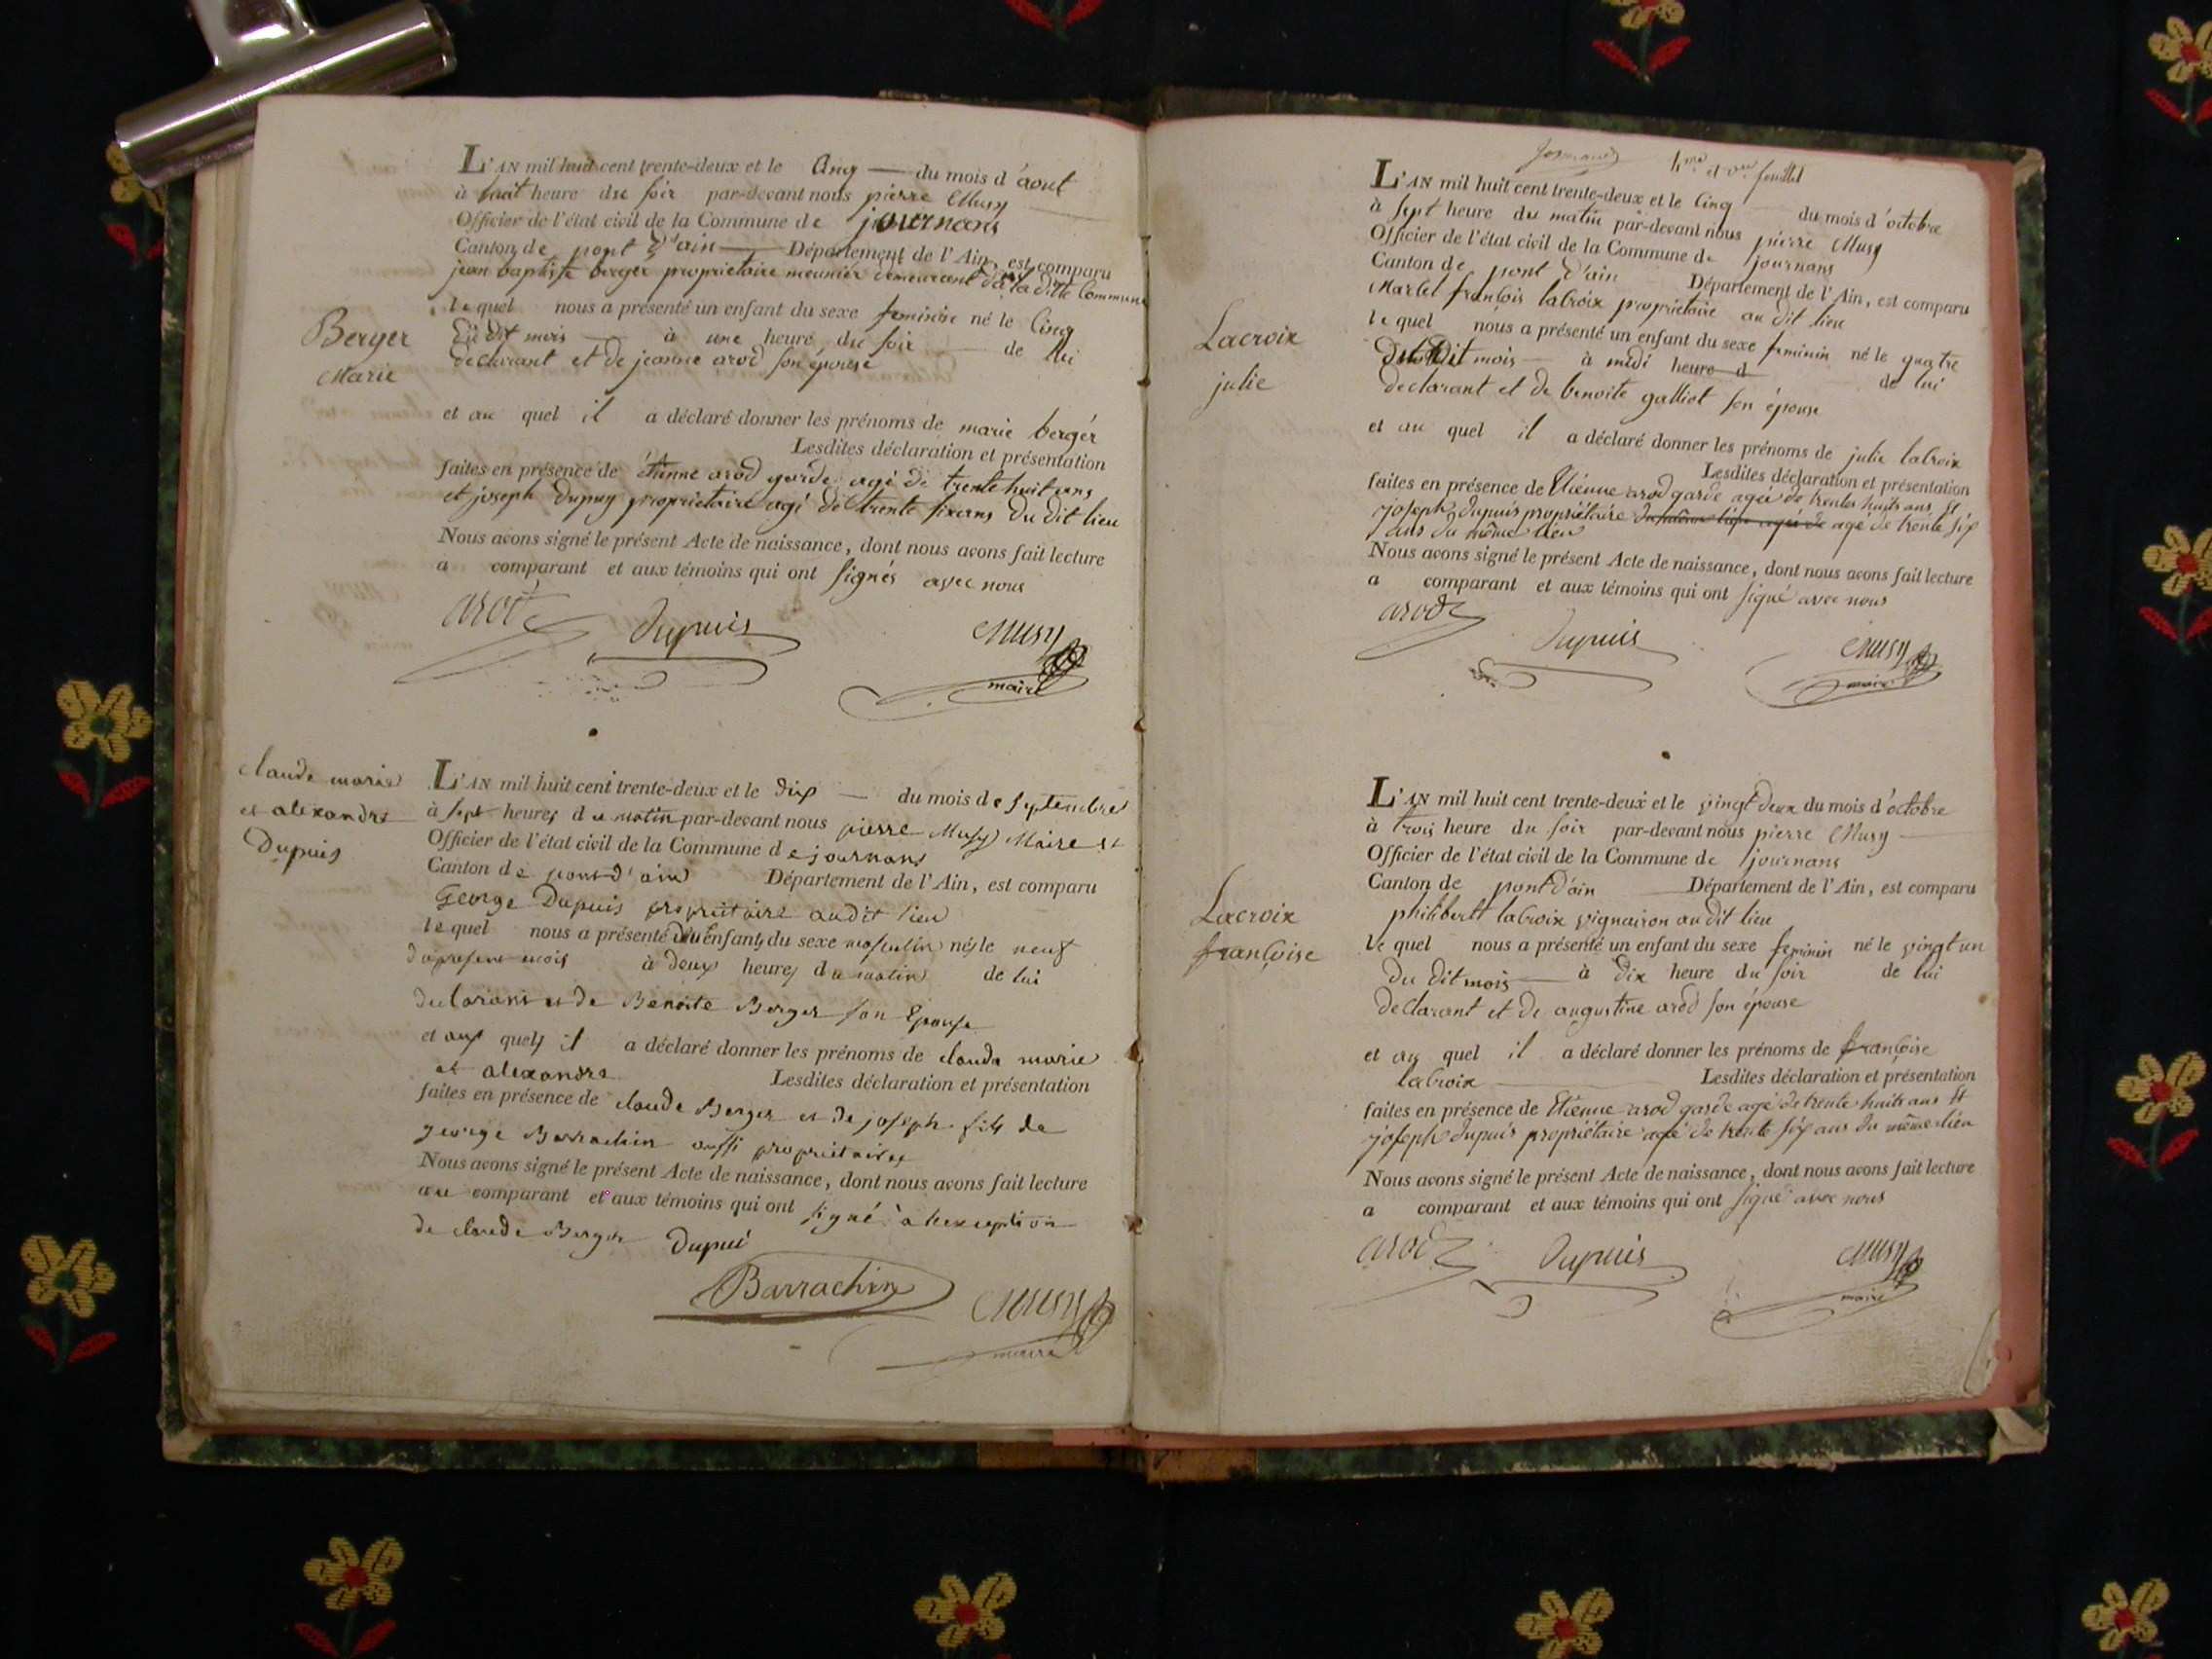 L'AN mil huit cent trente-deux et le Cinq — du mois d'aout
à huit heure du soir par-devant nous pierre Musy
Officier de l'état civil de la Commune de journans
Canton de pont d'ain — Département de l'Ain, est comparu
jean baptiste berger proprietaire meunier demeurant dela ditte Commune
lequel nous a présenté un enfant du sexe feminin né le Cinq
du dit mois — à une heure du soir — de lui
declarant et de jeanne arod son épouse
Berger
Marie
et au quel il a déclaré donner les prénoms de marie berger
Lesdites déclaration et présentation
faites en présence de étienne arod garde agé de trente huit ans
et joseph dupuy proprietaire agé de trente six ans du dit lieu
Nous avons signé le présent Acte de naissance, dont nous avons fait lecture
a comparant et aux témoins qui ont signés avec nous
arod
Dupuis
Musy
maire
claude marie
et alexandre
Dupuis
L'AN mil huit cent trente-deux et le dix — du mois de septembre
à sept heures du matin par-devant nous pierre Musy Maire et
Officier de l'état civil de la Commune de journans
Canton de pont d'ain Département de l'Ain, est comparu
George Dupuis propriétaire audit lieu
lequel nous a présenté deux enfants du sexe masculin nés le neuf
du present mois à deux heures du matin de lui
declarant et de Benoite Berger son Epouse
et aux quels il a déclaré donner les prénoms de claude marie
et alexandre Lesdites déclaration et présentation
faites en présence de claude Berger et de joseph fils de
george Barrachin aussi propriétaires
Nous avons signé le présent Acte de naissance, dont nous avons fait lecture
au comparant et aux témoins qui ont signé à l'exception
de claude Berger Dupui
Barrachin
Musy
maire
4me et der feuillet
L'AN mil huit cent trente-deux et le Cinq du mois d'octobre
à sept heure du matin par-devant nous pierre Musy
Officier de l'état civil de la Commune de journans
Canton de pont d'ain Département de l'Ain, est comparu
françois lacroix proprietaire au dit lieu
lequel nous a présenté un enfant du sexe feminin né le quatre
du dit mois — à midi heure d de lui
declarant et de benoite galliot son épouse
Lacroix
julie
et au quel il a déclaré donner les prénoms de julie lacroix
Lesdites déclaration et présentation
faites en présence de Etienne arod garde agée de trentes huits ans Et
joseph dupuis propriétaire du même lieu agé de agé de trente six
ans du même lieu
Nous avons signé le présent Acte de naissance, dont nous avons fait lecture
a comparant et aux témoins qui ont signé avec nous
arod
Dupuis
Musy
maire
L'AN mil huit cent trente-deux et le vingt deux du mois d'octobre
à trois heure du soir par-devant nous pierre Musy
Officier de l'état civil de la Commune de journans
Canton de pont d'ain — Département de l'Ain, est comparu
philibert lacroix vignairon au dit lieu
lequel nous a présenté un enfant du sexe feminin né le vingt un
du dit mois — à dix heure du soir de lui
declarant et de augustine arod son épouse
Lacroix
françoise
et au quel il a déclaré donner les prénoms de françoise
lacroix — Lesdites déclaration et présentation
faites en présence de Etienne arod garde agé de trente huits ans Et
joseph dupuis propriétaire agé de trente six ans du même lieu
Nous avons signé le présent Acte de naissance, dont nous avons fait lecture
a comparant et aux témoins qui ont signé avec nous
arod
Dupuis
Musy
maire